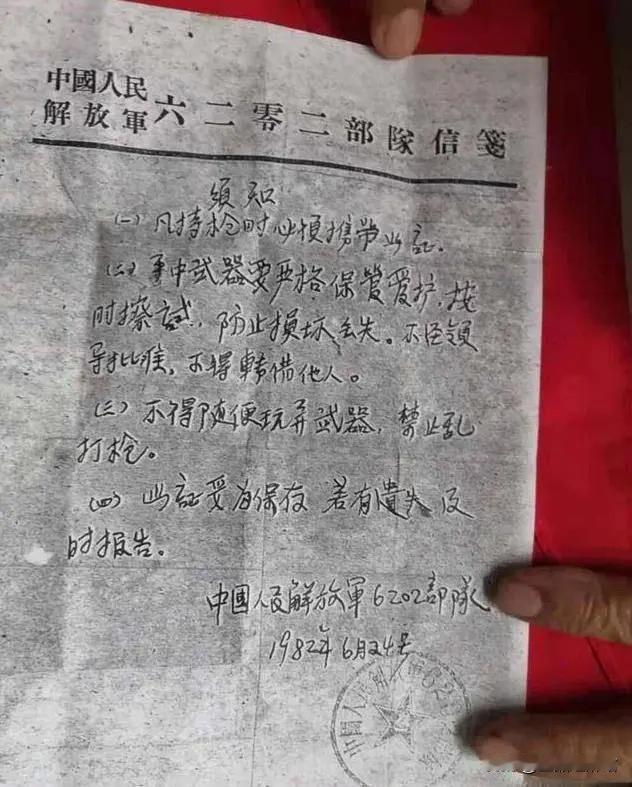 中國人民
解放軍六二零二部隊信箋
須知
(一)凡持枪时必須携带此証.
(二)手中武器要严格保管爱护,按
时擦试,防止损坏丢失。不经領
导批准,不得轉借他人。
(三)不得随便玩弄武器,禁止乱
打枪。
(四)此証妥为保存 若有遺失 及
时报告。
中國人民解放軍6202部隊
1982年6月24号
中國人民解